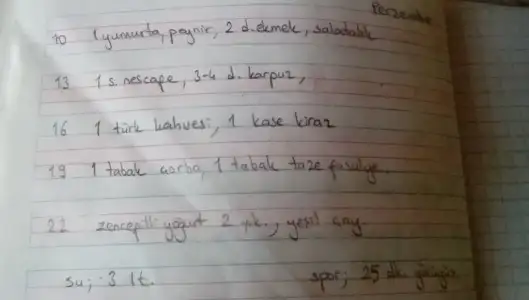 Perşembe
10 1 yumurta, peynir, 2 d. ekmek, salatalık
13 1 s. nescape, 3-4 d. karpuz,
16 1 türk kahvesi, 1 kase kiraz
19 1 tabak çorba, 1 tabak taze fasulye.
22 zencefilli yoğurt 2 yk., yeşil çay.
su; 3 lt. spor; 25 dk.